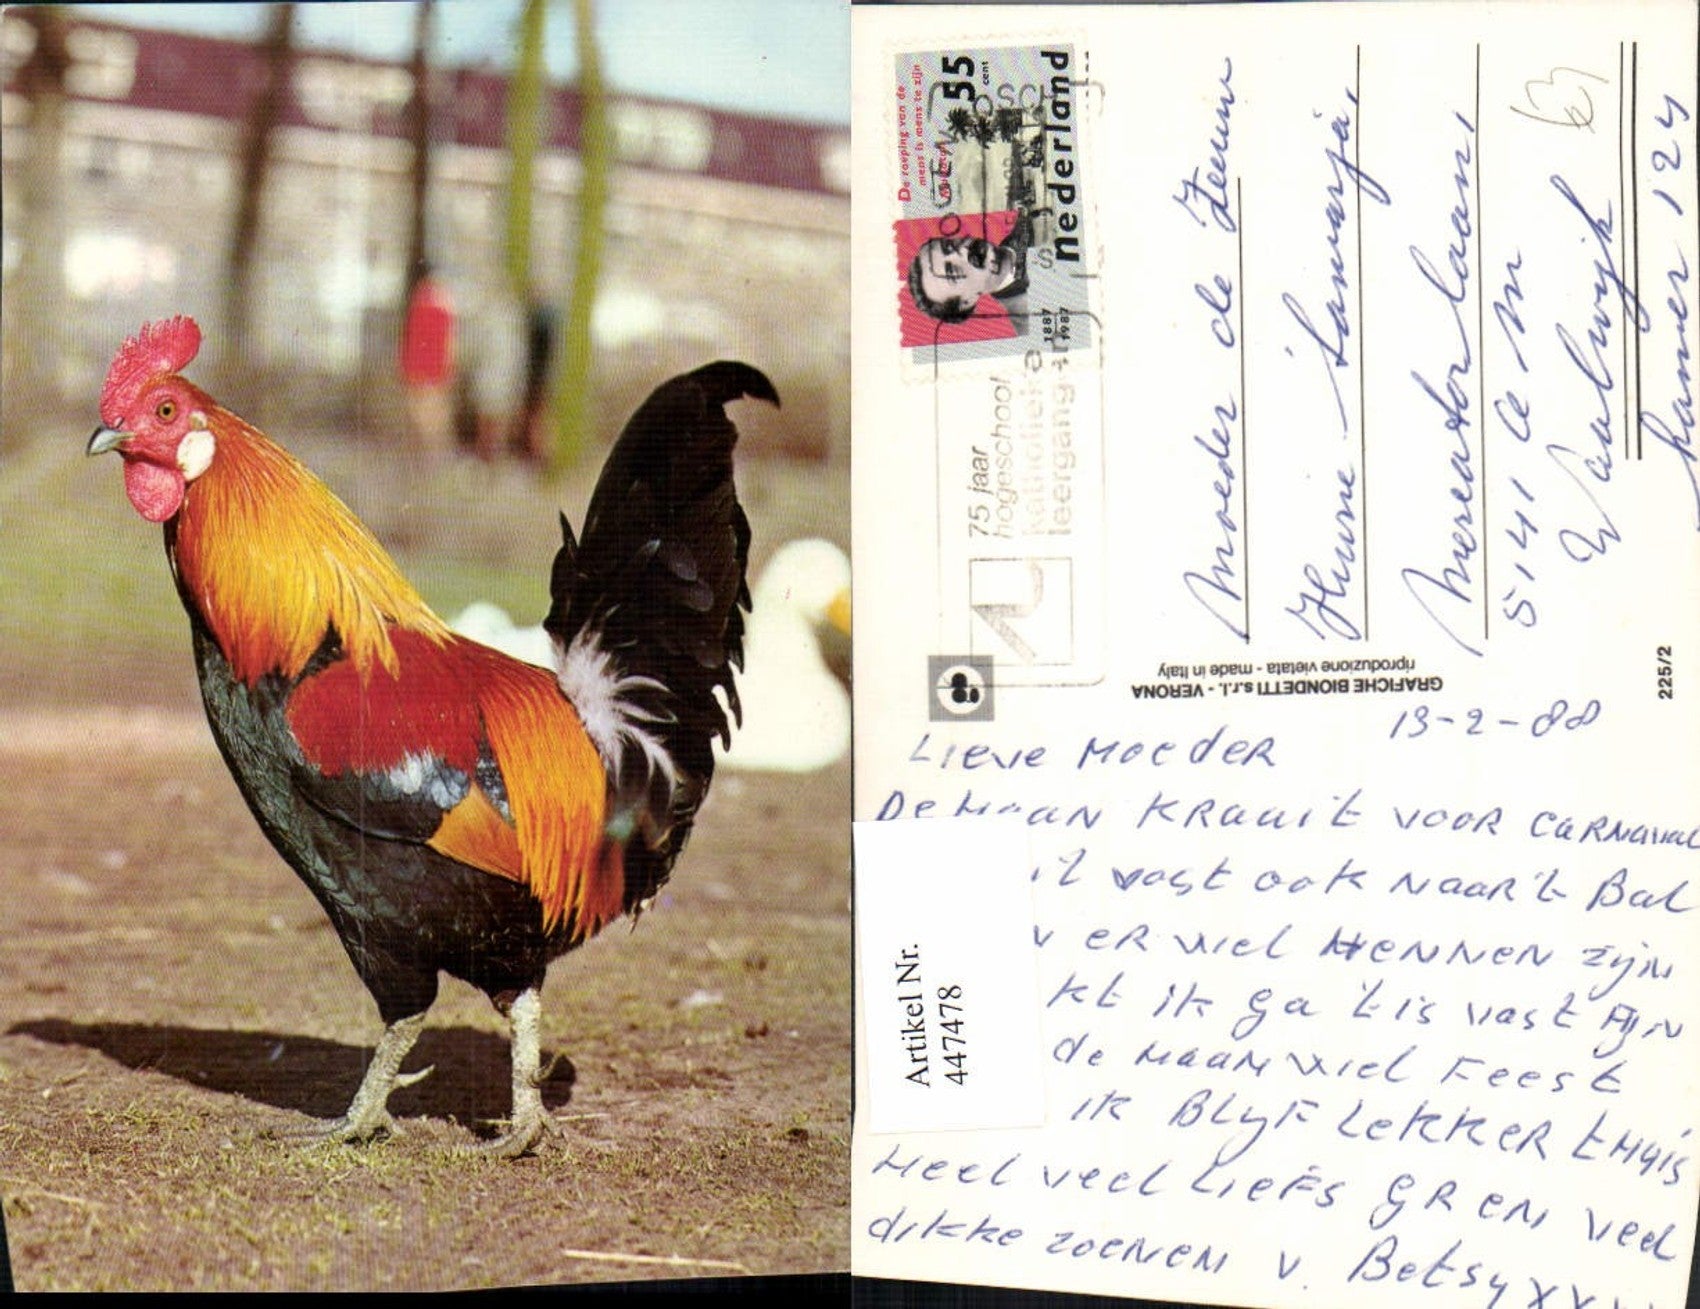 De roeping van de
mens is mens te zijn
55
cent
nederland
1887
1987
75 jaar
hogeschool
katholieke
leergangen
Moeder de Zeeuw
Huize
Mercatorlaan,
5141
Waalwijk
kamer 124
GRAFICHE BIONDETTI s.r.l. - VERONA
riproduzione vietata - made in Italy
225/2
13-2-88
LIEVE MOEDER
De HAAN KRAAIT VOOR CARNAVAL
vast ook NAAR 't Bal
ER VIEL HENNEN zijn
ik ga 't is vast Fijn
de HAAN VIEL FEEST
ik BLIJF LEKKER tHuis
Heel veel LIEFS GR EN veel
dikke zoenen v. Betsy xx
Artikel Nr.
447478